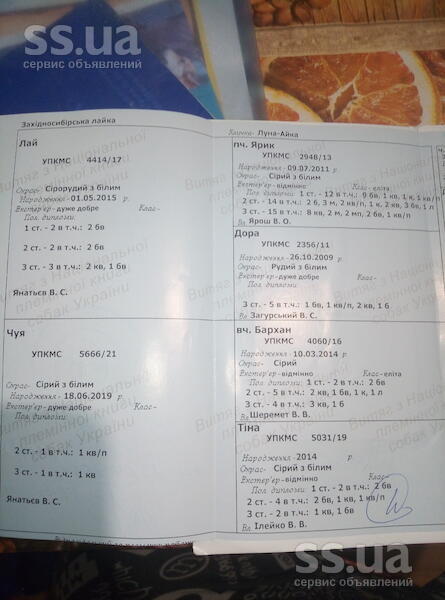 ss.ua
сервис объявлений
Західносибірська лайка
Кличка- Луна-Айка
Лай
УПКМС 4414/17
Окрас- Сірорудий з білим
Народження -01.05.2015
Екстер'ер-дуже добре Клас-
Пол. дипломи:
1 ст. - 2 в т.ч.: 2 бв
2 ст. - 2 в т.ч.: 2 бв
3 ст. - 3 в т.ч.: 2 кв, 1 бв
Янатьєв В. С.
Чуя
УПКМС 5666/21
Окрас- Сірий з білим
Народження - 18.06.2019
Екстер'ер-дуже добре Клас-
Пол. дипломи:
2 ст. - 1 в т.ч.: 1 кв/п
3 ст. - 1 в т.ч.: 1 кв
Янатьєв В. С.
пч. Ярик
УПКМС 2948/13
Народження - 09.07.2011
Окрас- Сірий з білим
Екстер'ер-відмінно Клас-еліта
Пол. дипломи: 1 ст. - 12 в т.ч.: 9 бв, 1 кв, 1 к, 1 кв/п
2 ст. - 14 в т.ч.: 2 б, 3 м, 2 кв/п, 1 к, 2 кв, 3 бв, 1 л
3 ст. - 15 в т.ч.: 8 кв, 2 м, 2 мп, 2 бв, 1 кв/п
Вл Ярош В. О.
Дора
УПКМС 2356/11
Народження - 26.10.2009
Окрас- Рудий з білим
Екстер'ер-відмінно Клас-еліта
Пол. дипломи:
3 ст. - 5 в т.ч.: 1 бв, 1 кв/п, 2 кв, 1 б
Вл Загурський В. С.
вч. Бархан
УПКМС 4060/16
Народження - 10.03.2014
Окрас- Сірий
Екстер'ер-відмінно Клас-еліта
Пол. дипломи: 1 ст. - 2 в т.ч.: 2 бв
2 ст. - 5 в т.ч.: 2 бв, 1 кв, 1 к, 1 м
3 ст. - 4 в т.ч.: 3 кв, 1 б
Вл Шеремет В. В.
Тіна
УПКМС 5031/19
Народження - 2014
Окрас- Сірий з білим
Екстер'ер-відмінно Клас-
Пол. дипломи: 1 ст. - 2 в т.ч.: 2 бв
2 ст. - 4 в т.ч.: 2 бв, 1 кв, 1 кв/п
3 ст. - 2 в т.ч.: 1 кв, 1 бв
Вл Ілейко В. В.
Витяг з Національної
племінної книги
собак України
ss.ua
сервис объявлений